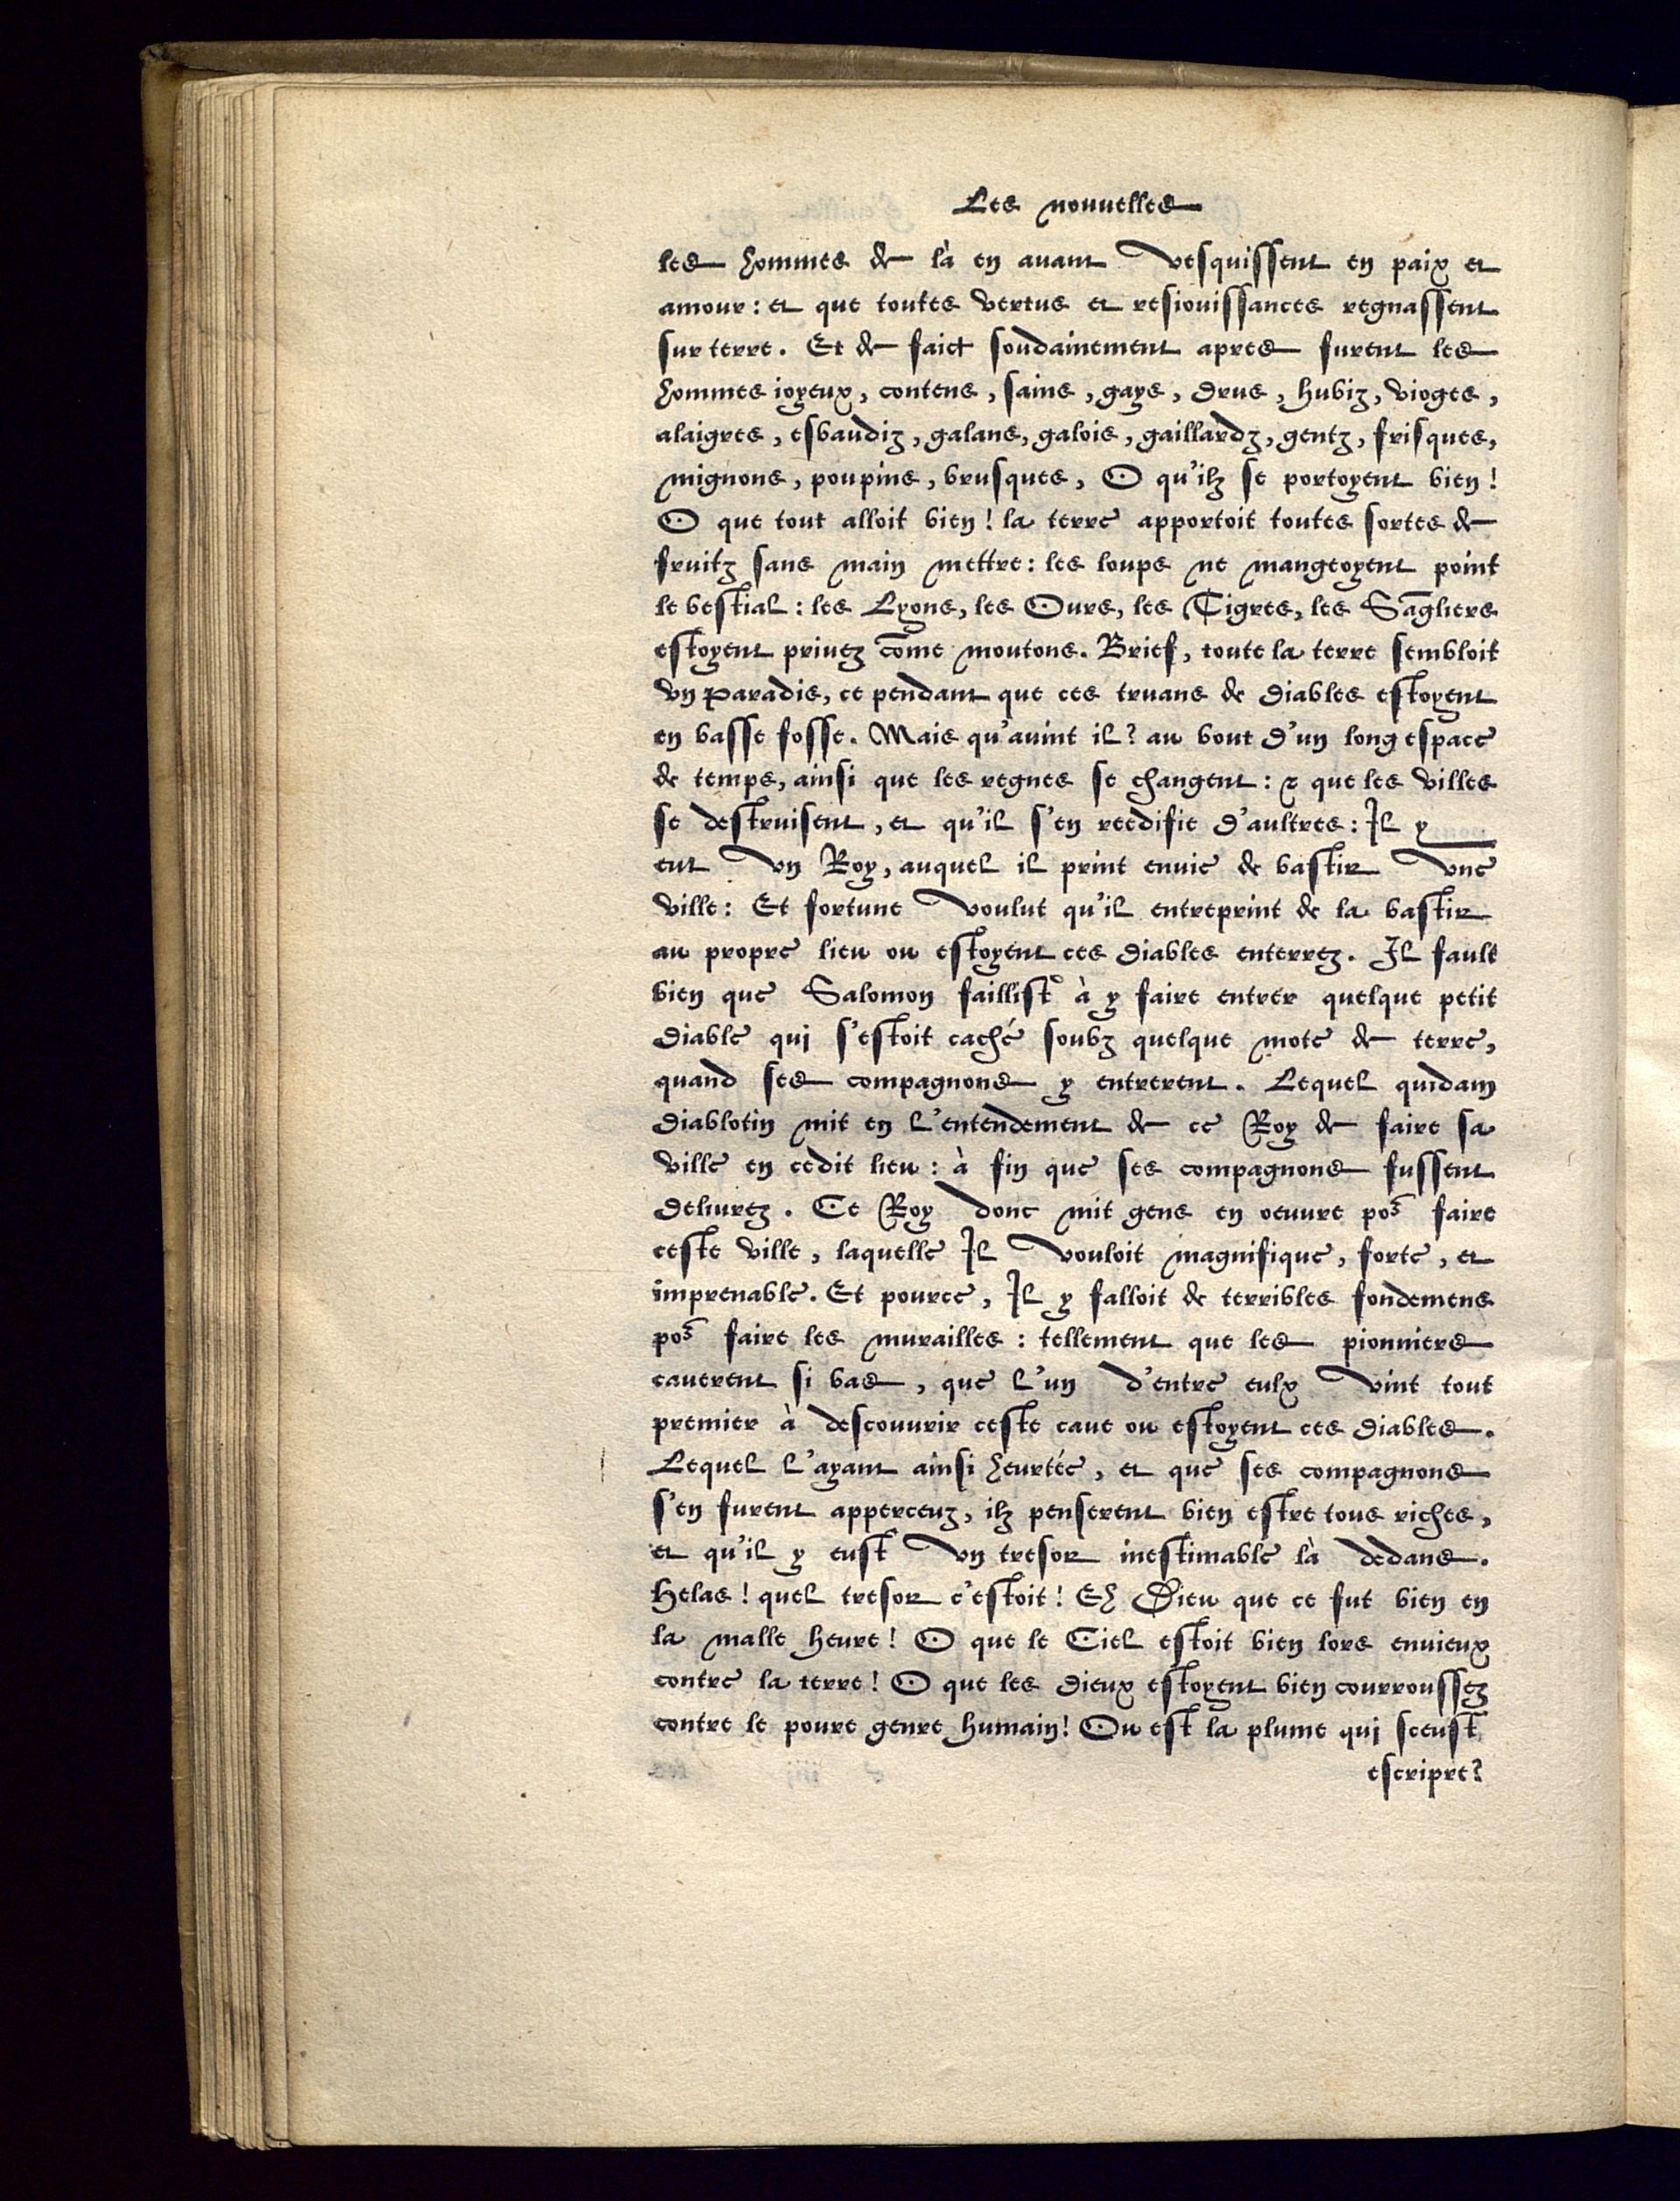 Les nouuelles
les hommes de là en auant vesquissent en paix et
amour: et que toutes vertus et resiouissances regnassent
sur terre. Et de faict soudainement apres furent les
hommes ioyeux, contens, sains, gays, drus, hubiz, vioges,
alaigres, esbaudiz, galans, galois, gaillardz, gentz, frisques,
mignons, poupins, brusques, O qu'ilz se portoyent bien!
O que tout alloit bien! la terre apportoit toutes sortes de
fruitz sans main mettre: les loups ne mangeoyent point
le bestial: les Lyons, les Ours, les Tigres, les Sāgliers
estoyent priuez cōme moutons. Brief, toute la terre sembloit
vn paradis, ce pendant que ces truans de diables estoyent
en basse fosse. Mais qu'auint il? au bout d'un long espace
de temps, ainsi que les regnes se changent: & que les villes
se destruisent, et qu'il s'en reedifie d'aultres: Il y
eut vn Roy, auquel il print enuie de bastir vne
ville: Et fortune voulut qu'il entreprint de la bastir
au propre lieu ou estoyent ces diables enterrez. Il fault
bien que Salomon faillist à y faire entrer quelque petit
diable qui s'estoit caché soubz quelque mote de terre,
quand ses compagnons y entrerent. Lequel quidam
diablotin mit en l'entendement de ce Roy de faire sa
ville en cedit lieu: à fin que ses compagnons fussent
deliurez. Ce Roy donc mit gens en oeuure por faire
ceste ville, laquelle Il vouloit magnifique, forte, et
imprenable. Et pource, Il y falloit de terribles fondemens
por faire les murailles: tellement que les pionniers
cauerent si bas, que l'un d'entre eulx vint tout
premier à descouurir ceste caue ou estoyent ces diables.
Lequel l'ayant ainsi heurtée, et que ses compagnons
s'en furent apperceuz, ilz penserent bien estre tous riches,
et qu'il y eust vn tresor inestimable là dedans.
Helas! quel tresor c'estoit! Eh Dieu que ce fut bien en
la malle heure! O que le Ciel estoit bien lors enuieux
contre la terre! O que les dieux estoyent bien courroussez
contre le poure genre humain! Ou est la plume qui sceust
escripre?